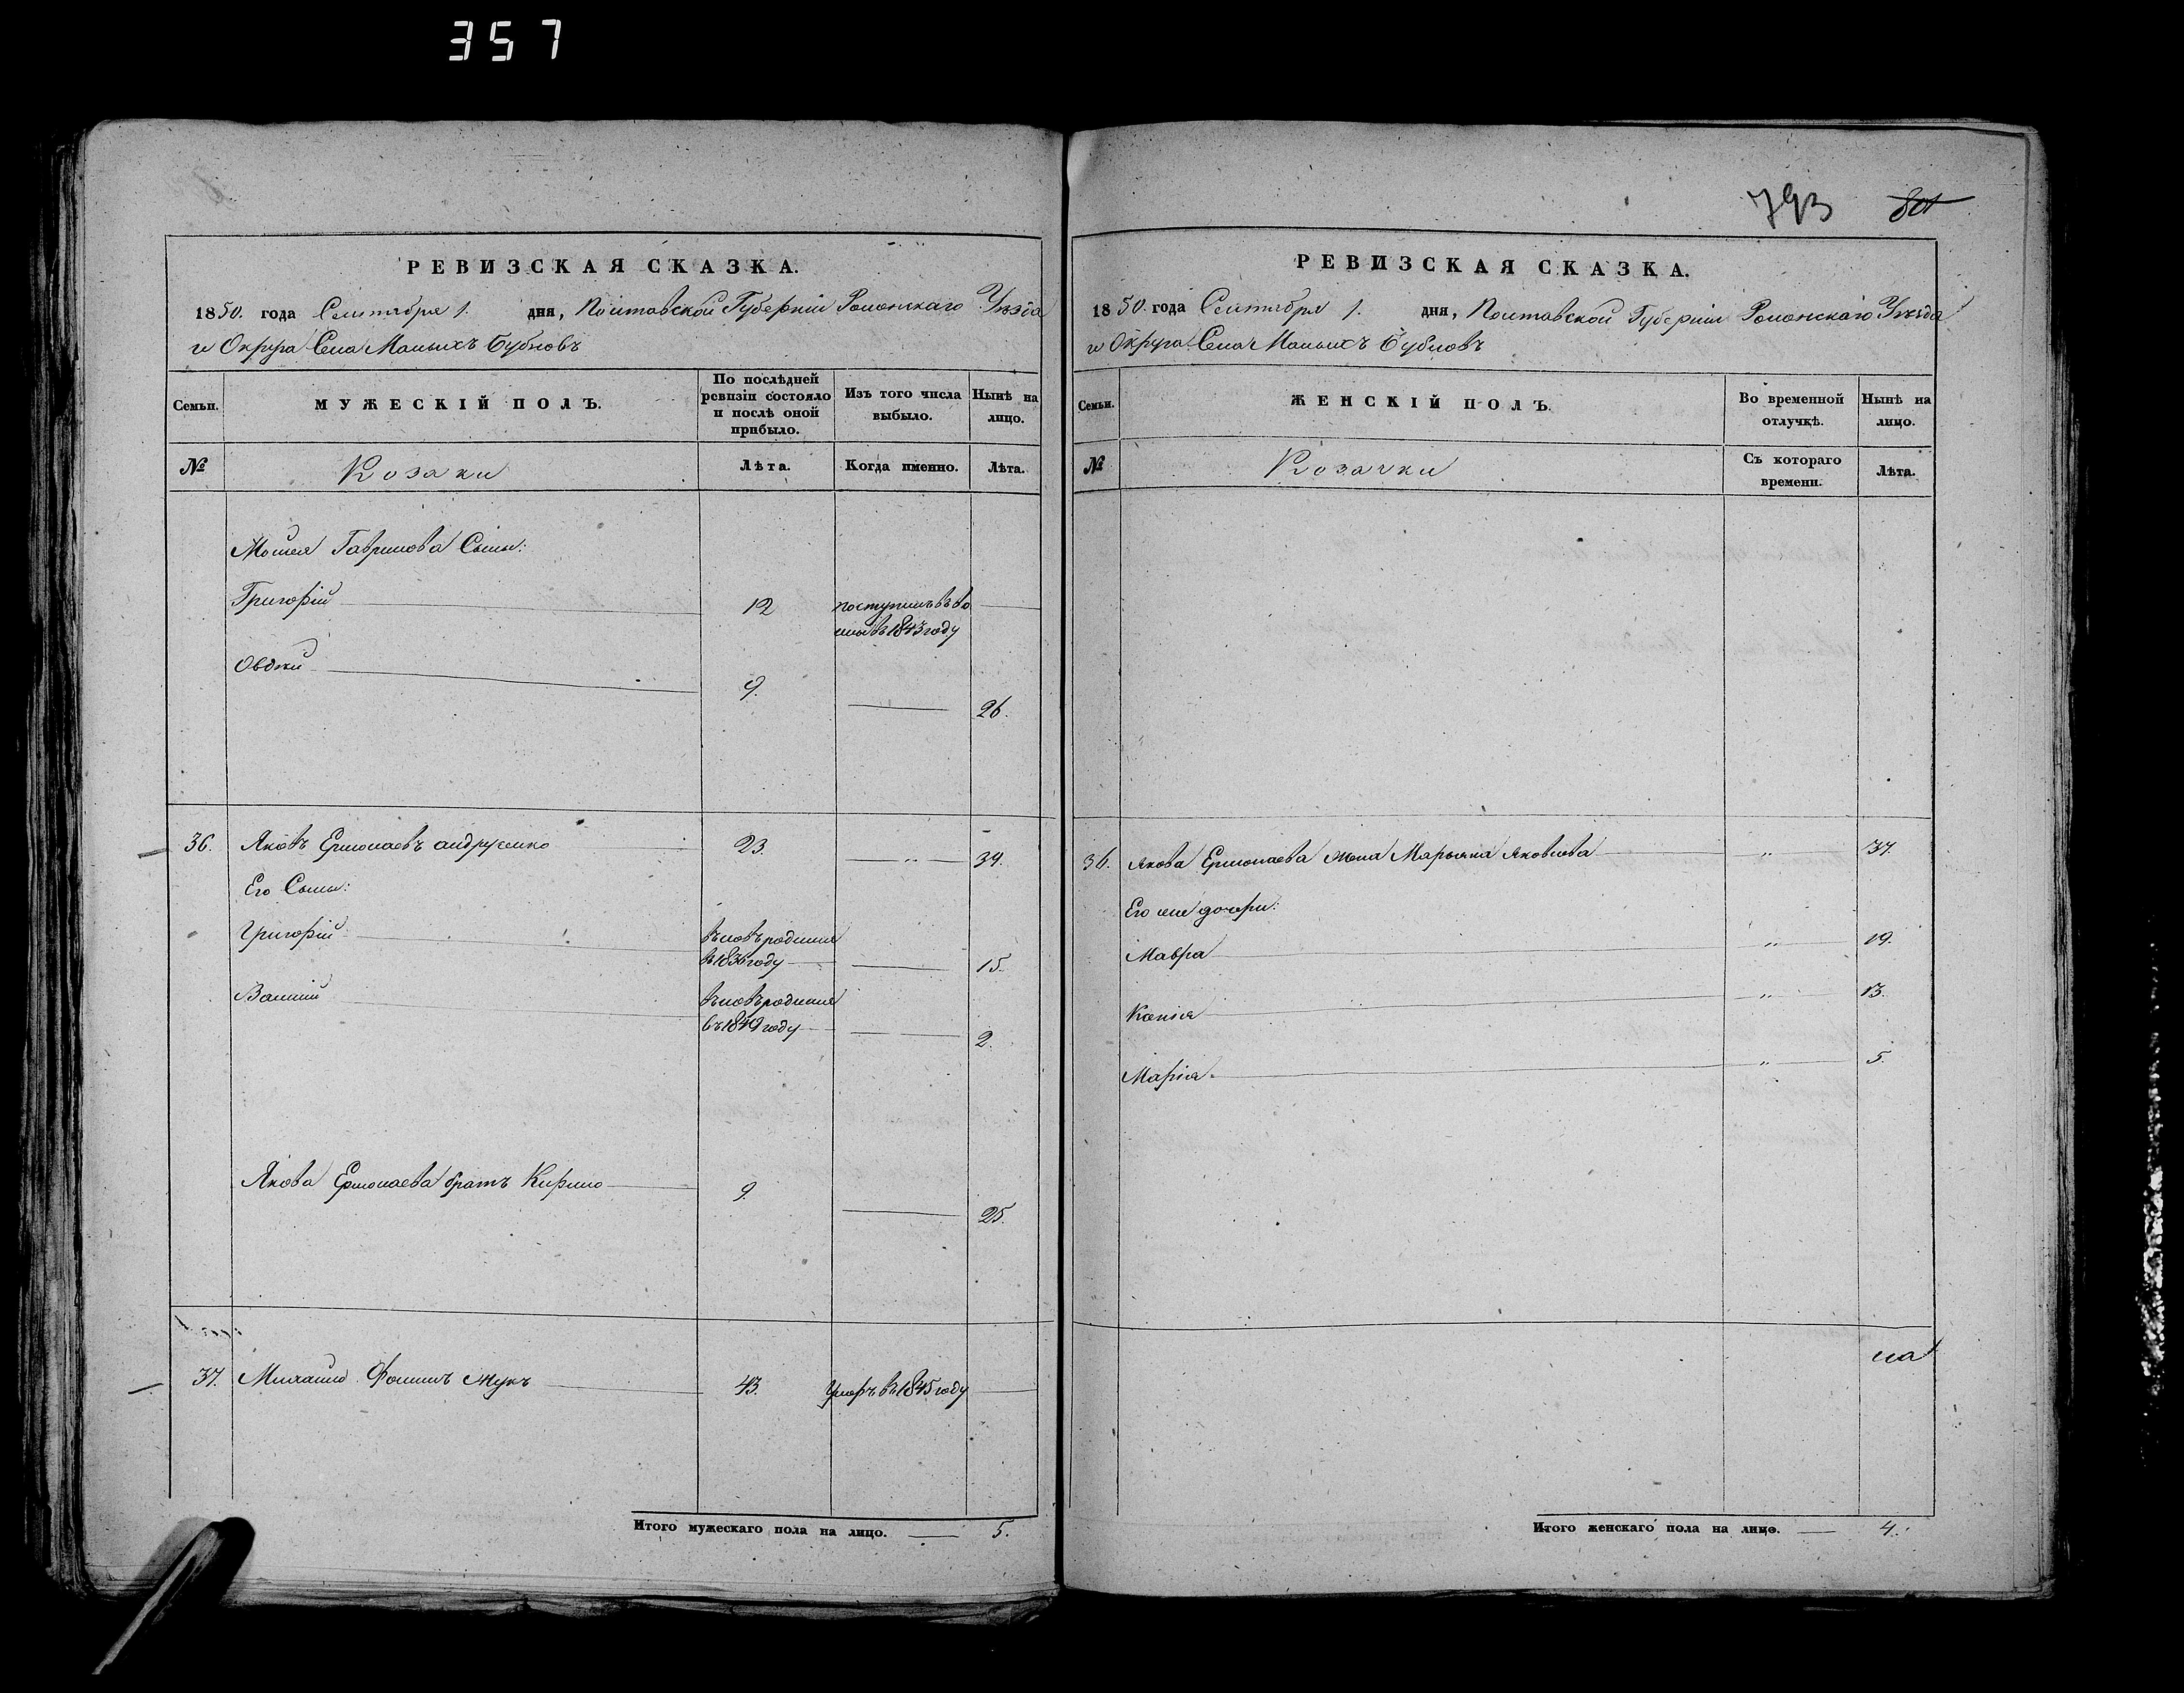 357
793
801
РЕВИЗСКАЯ СКАЗКА.
1850. года Сентября 1. дня, Полтавской Губерніи Роменскаго Уѣзда
и Округа Села Малыхъ Бубновъ
Семьи.
МУЖЕСКІЙ ПОЛЪ.
По послѣдней ревизіи состояло и послѣ оной прибыло.
Изъ того числа выбыло.
Нынѣ на лицо.
№
Козаки
Лѣта.
Когда именно.
Лѣта.
Гаврилова Сыны:
Григорій 12 поступилъ въ
въ 1843 году
9. 26.
36. Яковъ Ермолаевъ Андрусенко 23. " 39.
Его Сыны:
Григорій вновь родился
въ 1836 году 15.
Василій вновь родился
въ 1849 году 2.
Якова Ермолаева братъ Кирило 9. 25.
37. Михайло Фоминъ Жукъ 43. Умеръ въ 1845 году
Итого мужескаго пола на лицо. 5.
РЕВИЗСКАЯ СКАЗКА.
1850. года Сентября 1. дня, Полтавской Губерніи Роменскаго Уѣзда
и Округа Села Малыхъ Бубновъ
Семьи.
ЖЕНСКІЙ ПОЛЪ.
Во временной отлучкѣ.
Нынѣ на лицо.
№
Козачки
Съ котораго времени.
Лѣта.
36. Якова Ермолаева жена Марьяна Яковлева " 37.
Его же дочери:
Мавра " 19.
Ксенія " 13.
Марія " 5.
Итого женскаго пола на лицо. 4.